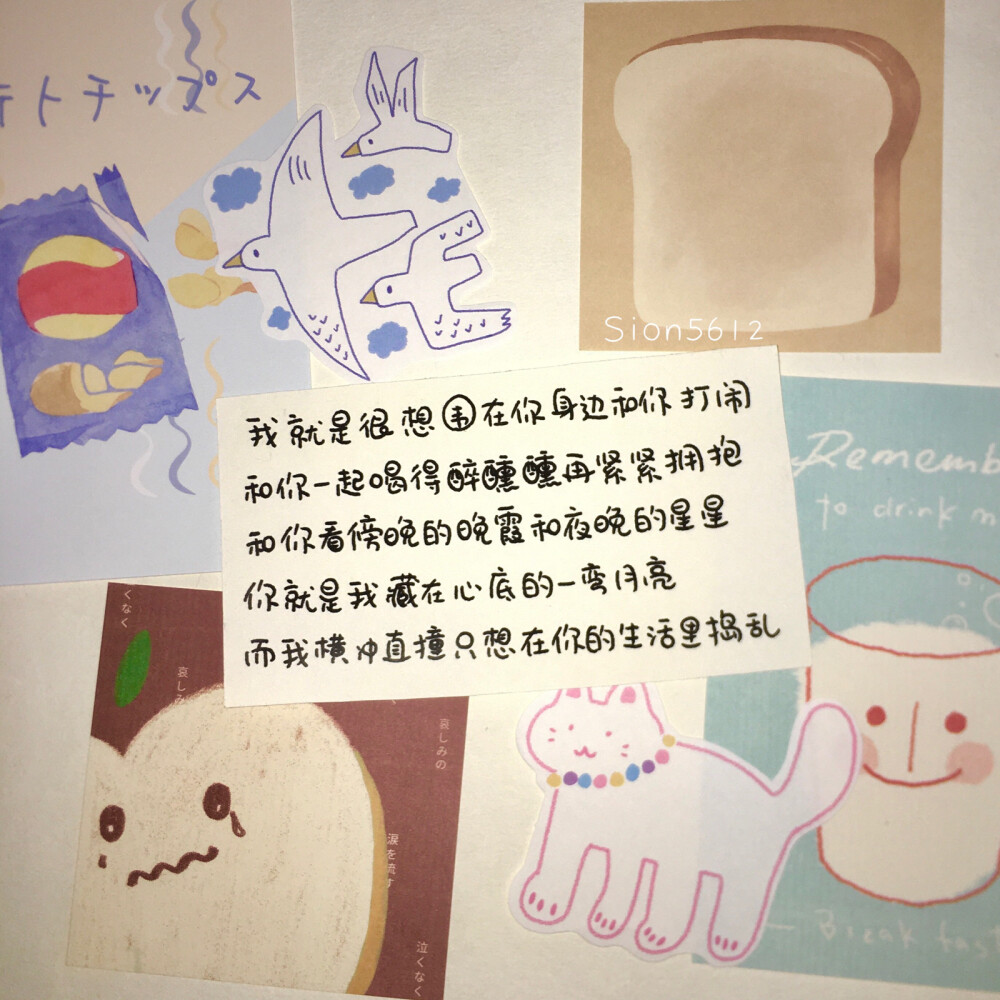 テトチップス
Sion5612
我就是很想围在你身边和你打闹
和你一起喝得醉醺醺再紧紧拥抱
和你看傍晚的晚霞和夜晚的星星
你就是我藏在心底的一弯月亮
而我横冲直撞只想在你的生活里捣乱
Rememb
to drink m
くなく
哀しみ
哀しみの
涙を流す
泣くなく
Break fast